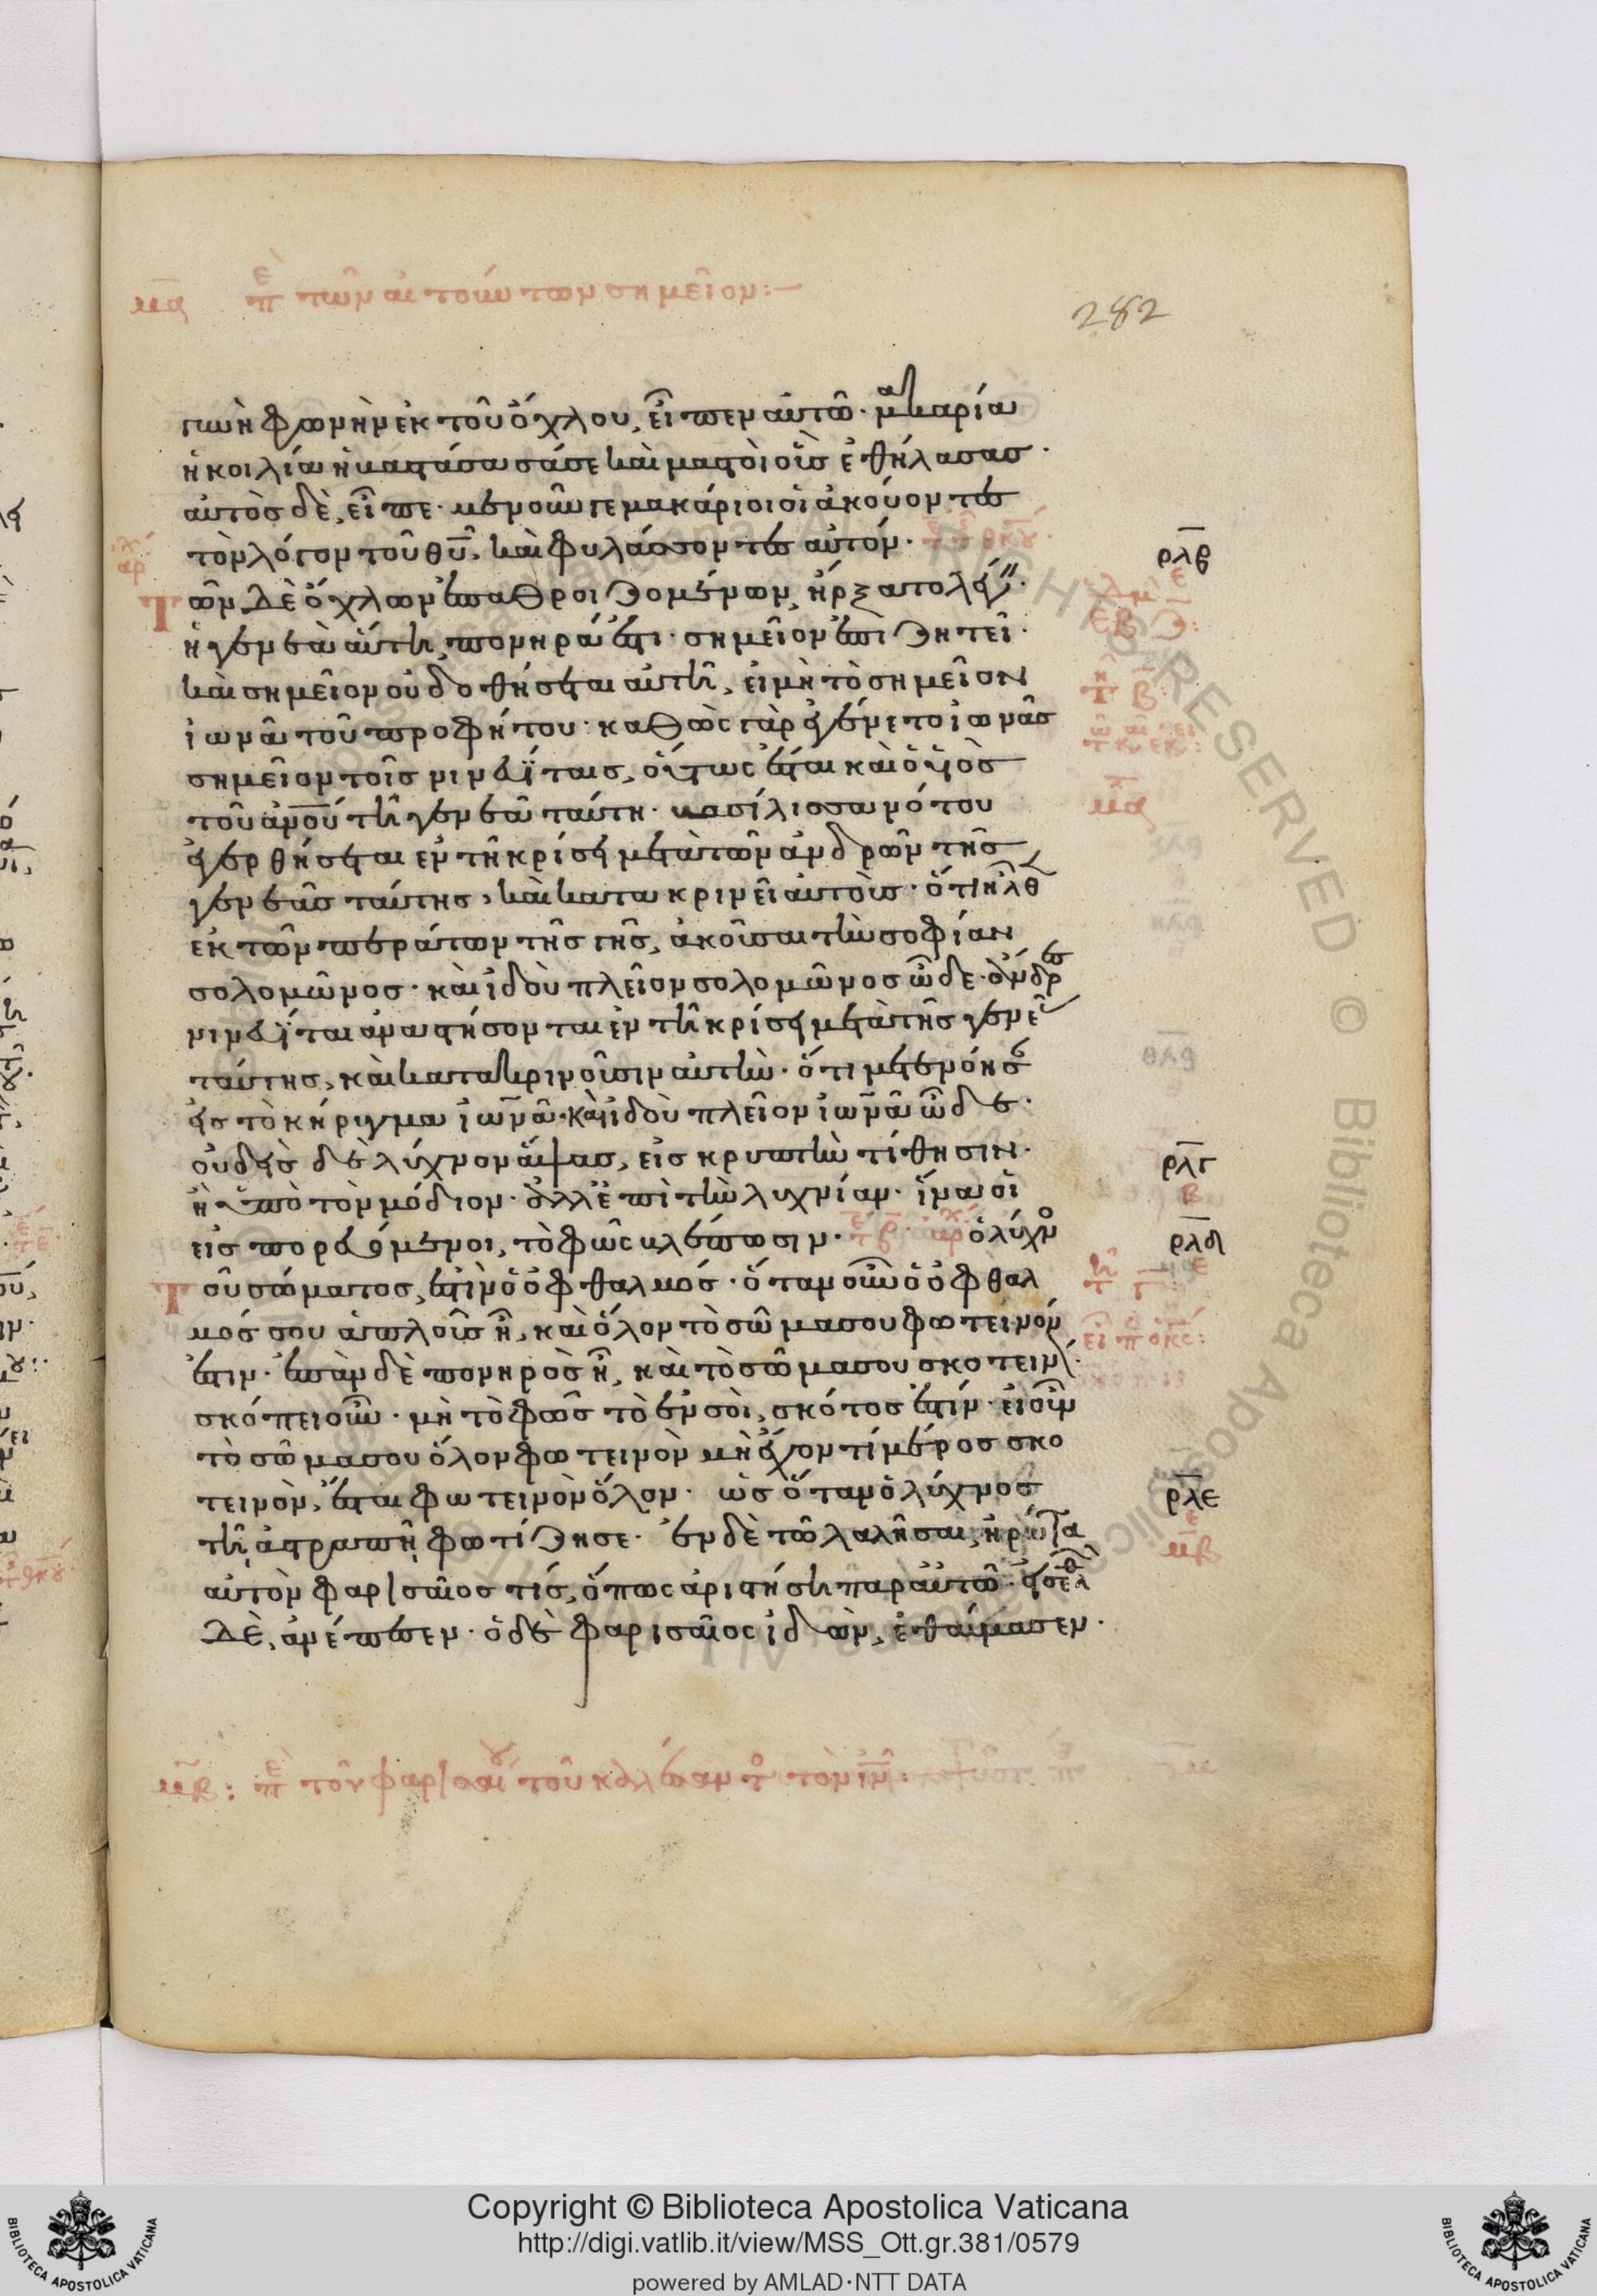 μα πε τῶν αἰτούντων σημεῖον:—
282
γυνὴ φωνὴν ἐκ τοῦ ὄχλου, εἶπεν αὐτῶ· μακαρία
ἡ κοιλία ἡ βαστάσασά σε καὶ μαστοὶ οἷς ἐθήλασας·
αὐτὸς δὲ, εἶπε· μενοῦν γε μακάριοι οἱ ἀκούοντες
τὸν λόγον τοῦ θυ, καὶ φυλάσσοντες αὐτόν·
ρλβ
Τῶν δὲ ὄχλων ἐπαθροιζομένων, ἤρξατο λέγειν·
ἡ γενεὰ αὕτη, πονηρά ἐστι· σημεῖον ἐπιζητεῖ·
καὶ σημεῖον οὐ δοθήσεται αὐτῆ, εἰ μὴ τὸ σημεῖον
ἰωνᾶ τοῦ προφήτου· καθὼς γὰρ ἐγένετο ἰωνᾶς
σημεῖον τοῖς νινευΐταις, οὕτως ἔσται καὶ ὁ υἱὸς
τοῦ ανου τῆ γενεᾶ ταύτη· βασίλισσα νότου
μα
ἐγερθήσεται ἐν τῆ κρίσει μετὰ τῶν ἀνδρῶν τῆς
γενεᾶς ταύτης, καὶ κατακρινεῖ αὐτοὺς· ὅτι ἦλθεν
ἐκ τῶν περάτων τῆς γῆς, ἀκοῦσαι τὴν σοφίαν
σολομῶνος· καὶ ἰδοὺ πλεῖον σολομῶνος ὧδε· ἄνδρες
νινευΐται ἀναστήσονται ἐν τῆ κρίσει μετὰ τῆς γενεᾶς
ταύτης, καὶ κατακρινοῦσιν αὐτὴν· ὅτι μετενόησαν
εἰς τὸ κήρυγμα ἰωνᾶ· καὶ ἰδοὺ πλεῖον ἰωνᾶ ὧδε·
οὐδεὶς δὲ λύχνον ἅψας, εἰς κρυπτὴν τίθησιν·
ρλγ
ἢ ὑπὸ τὸν μόδιον· ἀλλ' ἐπὶ τὴν λυχνίαν· ἵνα οἱ
εἰσπορευόμενοι, τὸ φῶς βλέπωσιν· ὁ λύχνος
ρλδ
Τοῦ σώματος, ἐστὶν ὁ ὀφθαλμός· ὅταν οὖν ὁ ὀφθαλ
μός σου ἁπλοῦς ἦ, καὶ ὅλον τὸ σῶμα σου φωτεινόν
ἐστιν· ἐπὰν δὲ πονηρὸς ἦ, καὶ τὸ σῶμα σου σκοτεινόν·
σκόπει οὖν· μὴ τὸ φῶς τὸ ἐν σοὶ, σκότος ἐστίν· εἰ οὖν
τὸ σῶμα σου ὅλον φωτεινὸν μὴ ἔχον τί μέρος σκο
τεινὸν, ἔσται φωτεινὸν ὅλον· ὡς ὅταν ὁ λύχνος
ρλε
τῆ ἀστραπῆ φωτίζη σε· ἐν δὲ τῶ λαλῆσαι, ἠρώτα
μβ
αὐτὸν φαρισαῖος τίς, ὅπως ἀριστήση παρ' αὐτῶ· εἰσελθὼν
δὲ, ἀνέπεσεν· ὁ δὲ φαρισαῖος ἰδὼν, ἐθαύμασεν·
μβ: πε τοῦ φαρισαίου τοῦ καλέσαντος τὸν ιν:
Copyright © Biblioteca Apostolica Vaticana
http://digi.vatlib.it/view/MSS_Ott.gr.381/0579
powered by AMLAD·NTT DATA